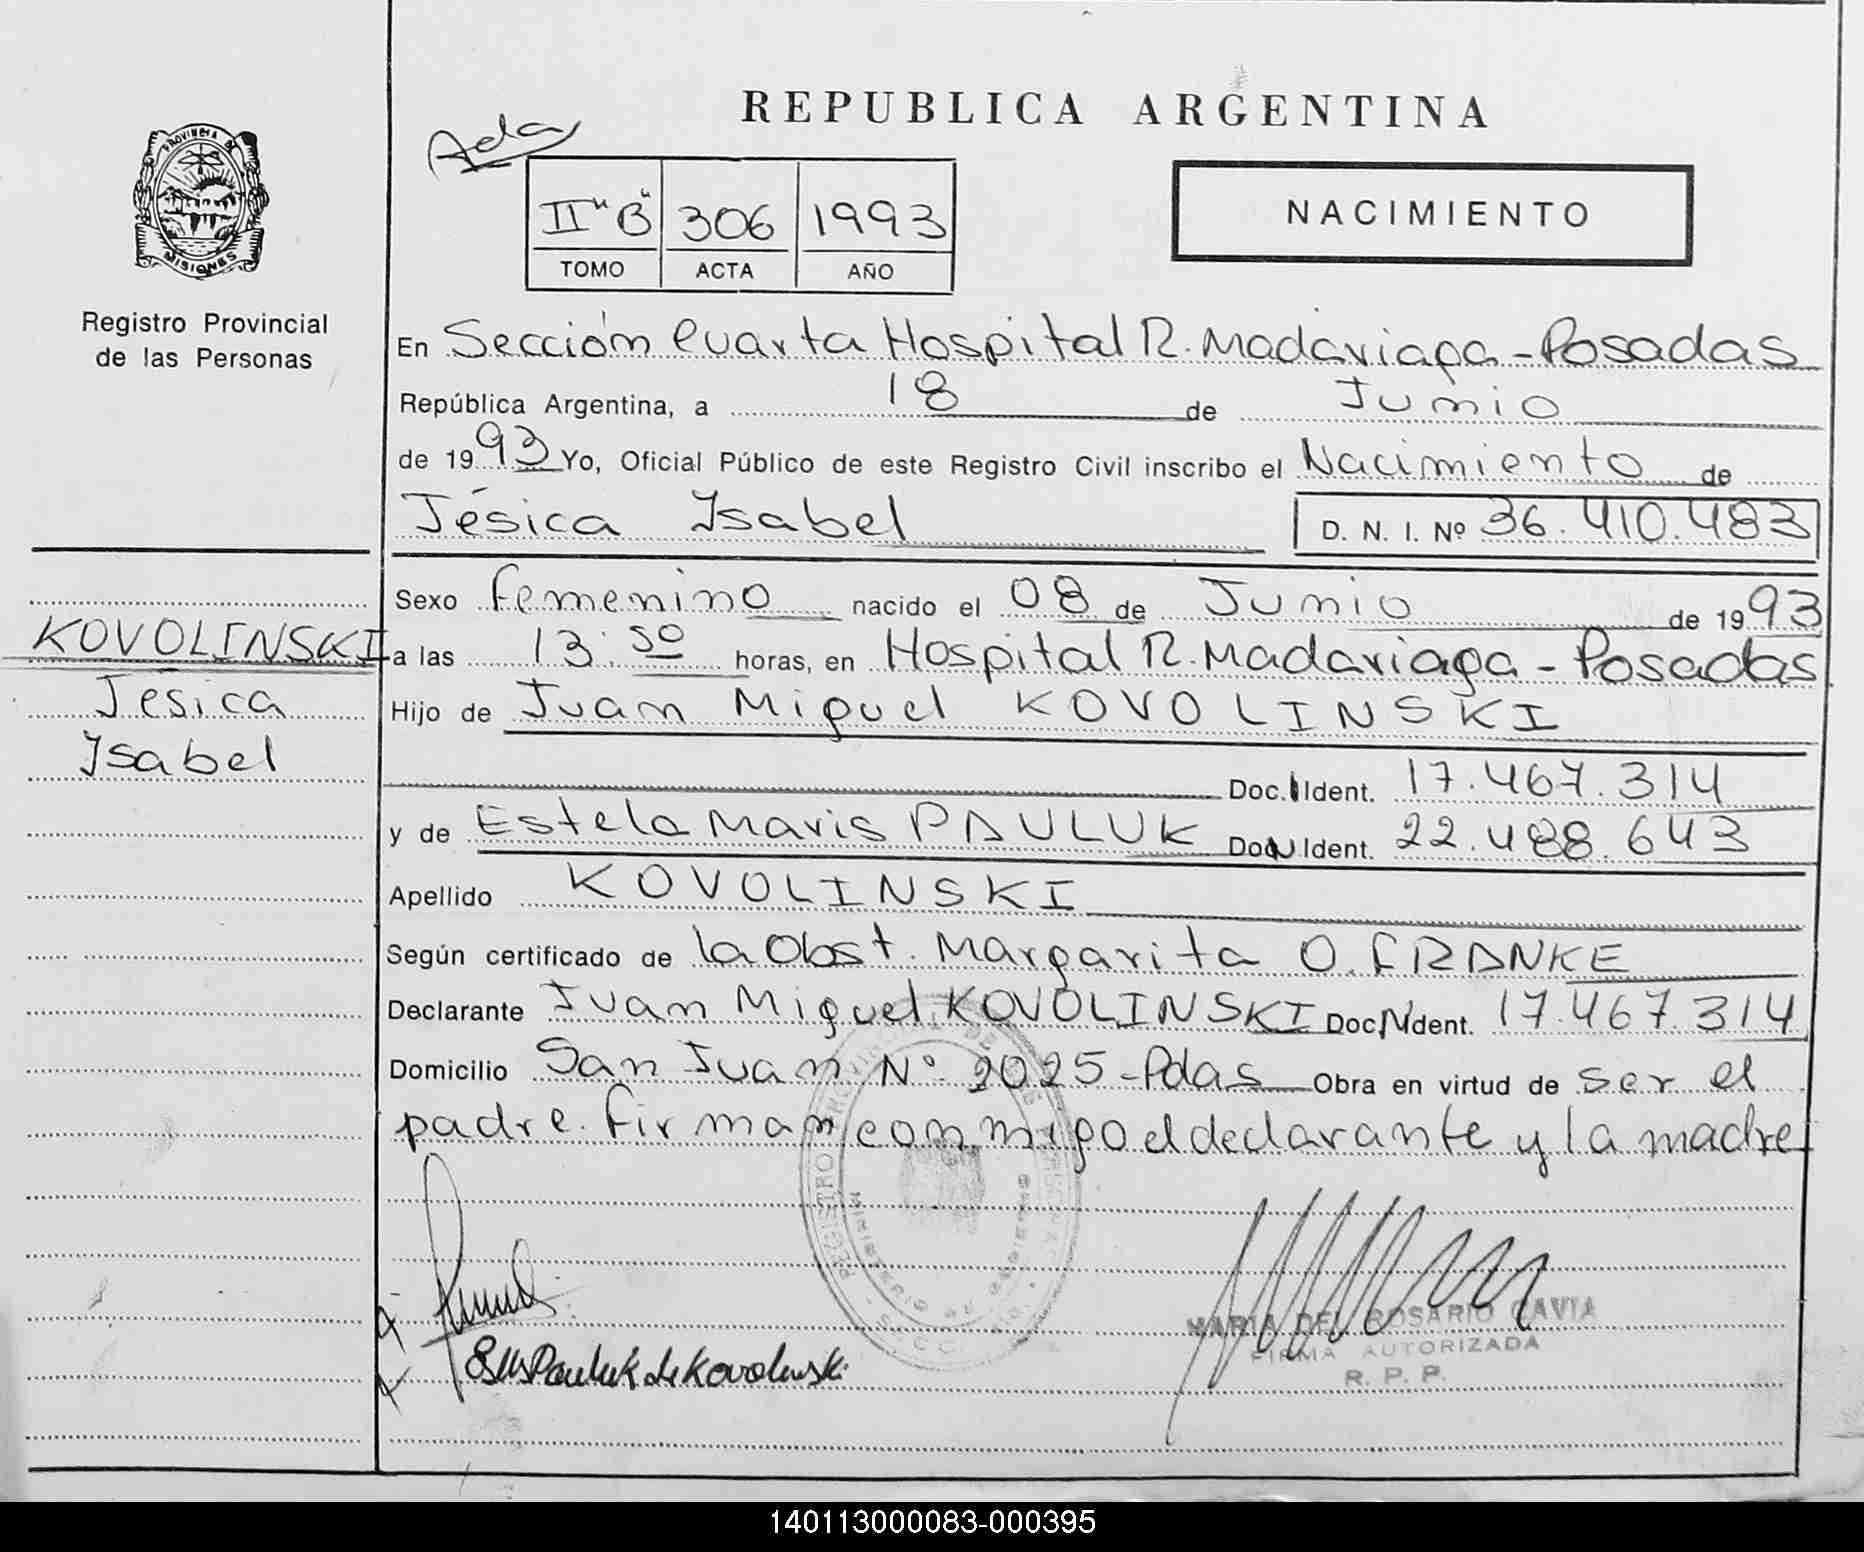 REPUBLICA ARGENTINA
Ada
PROVINCIA DE
MISIONES
Registro Provincial
de las Personas
II "B" 306 1993
TOMO ACTA AÑO
NACIMIENTO
En Sección Cuarta Hospital R. Madariaga - Posadas
República Argentina, a 18 de Junio
de 1993 Yo, Oficial Público de este Registro Civil inscribo el Nacimiento de
Jésica Isabel D. N. I. Nº 36.410.483
Sexo femenino nacido el 08 de Junio de 1993
KOVOLINSKI
a las 13:50 horas, en Hospital R. Madariaga - Posadas
Jésica
Hijo de Juan Miguel KOVOLINSKI
Isabel
Doc. Ident. 17.467.314
y de Estela Maris PAULUK Doc N Ident. 22.488.643
Apellido KOVOLINSKI
Según certificado de la Obst. Margarita O. FRANKE
Declarante Juan Miguel KOVOLINSKI Doc N Ident. 17.467.314
Domicilio San Juan Nº 2025 - Pdas Obra en virtud de ser el
padre. firman conmigo el declarante y la madre
REGISTRO PROVINCIAL DE LAS PERSONAS
MINISTERIO DE GOBIERNO
MARIA DEL ROSARIO CAVIA
FIRMA AUTORIZADA
R. P. P.
Pauluk de Kovolinski
140113000083-000395